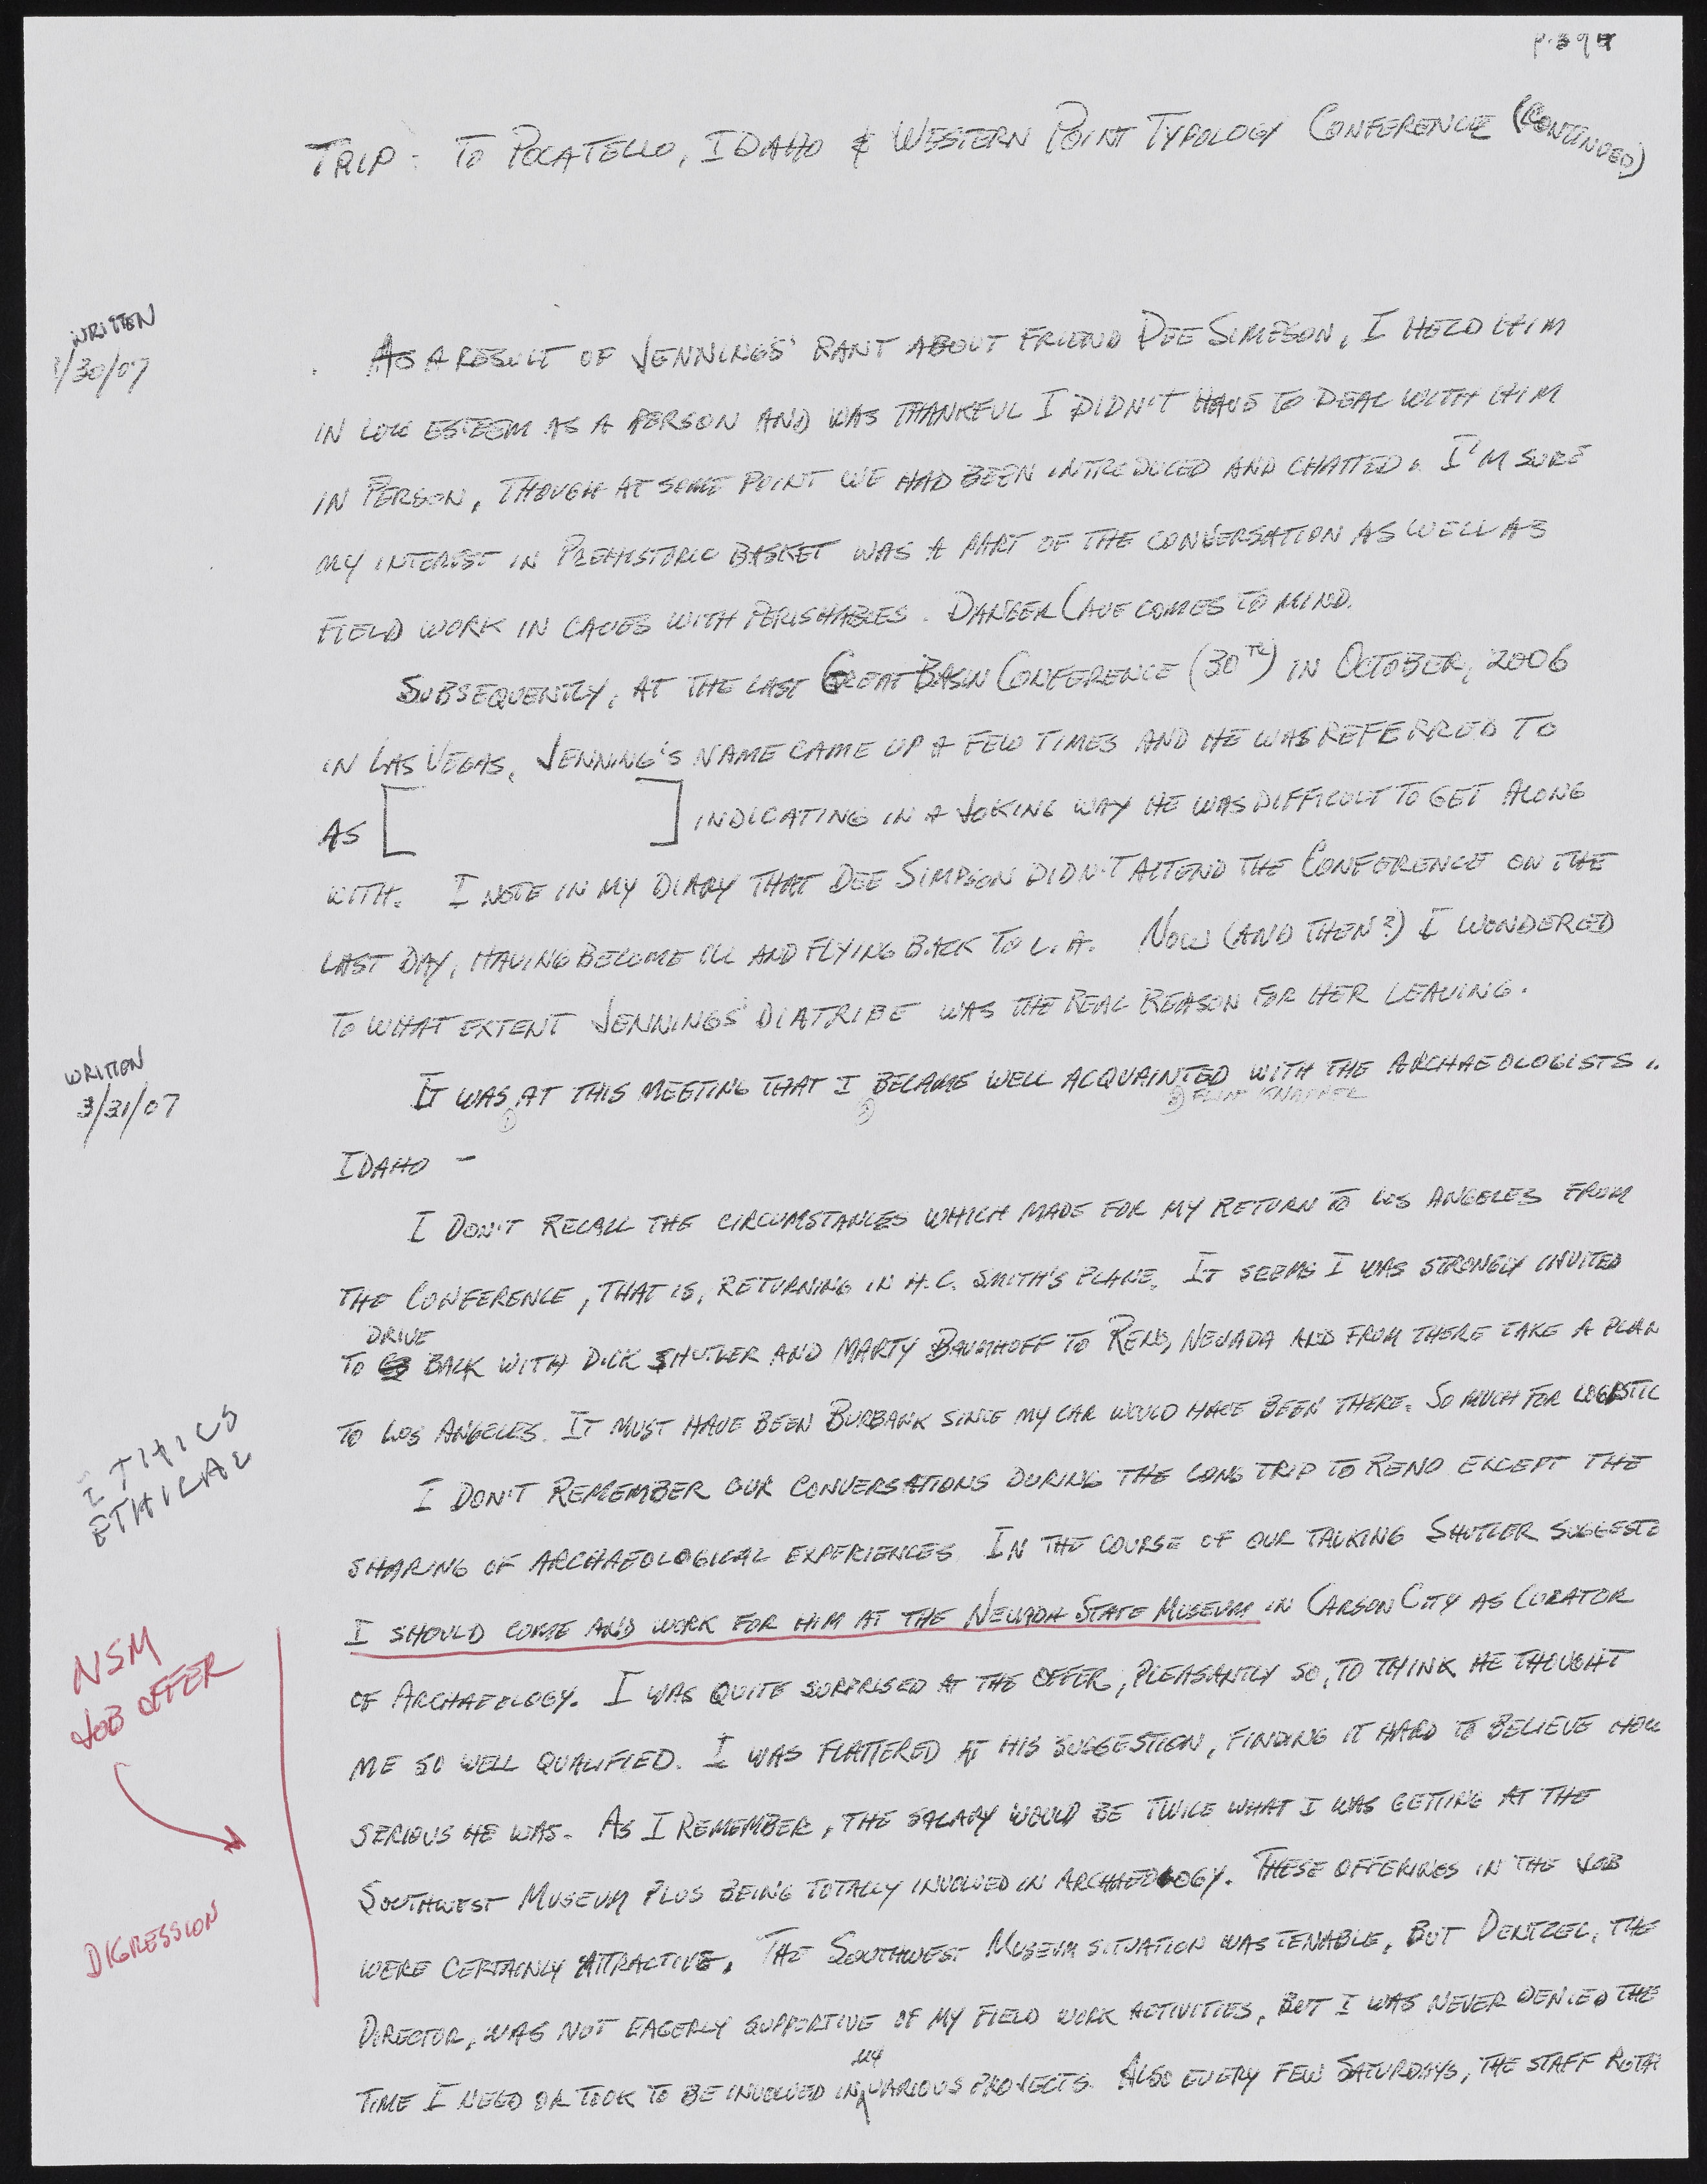 TRIP: TO POCATELLO, IDAHO & WESTERN POINT TYPOLOGY CONFERENCE (CONTINUED)
WRITTEN
3/30/07
AS A RESULT OF JENNINGS' RANT ABOUT FRIEND DEE SIMPSON, I HELD HIM
IN LOW ESTEEM AS A PERSON AND WAS THANKFUL I DIDN'T HAVE TO DEAL WITH HIM
IN PERSON, THOUGH AT SOME POINT WE HAD BEEN INTRODUCED AND CHATTED. I'M SURE
MY INTEREST IN PREHISTORIC BASKET WAS A PART OF THE CONVERSATION AS WELL AS
FIELD WORK IN CAVES WITH PERISHABLES. DANGER CAVE COMES TO MIND.
SUBSEQUENTLY, AT THE LAST GREAT BASIN CONFERENCE (30TH) IN OCTOBER, 2006
IN LAS VEGAS, JENNING'S NAME CAME UP A FEW TIMES AND HE WAS REFERRED TO
AS [ ] INDICATING IN A JOKING WAY HE WAS DIFFICULT TO GET ALONG
WITH. I NOTE IN MY DIARY THAT DEE SIMPSON DIDN'T ATTEND THE CONFERENCE ON THE
LAST DAY, HAVING BECOME ILL AND FLYING BACK TO L.A. NOW (AND THEN?) I WONDERED
TO WHAT EXTENT JENNINGS' DIATRIBE WAS THE REAL REASON FOR HER LEAVING.
WRITTEN
3/31/07
IT WAS AT THIS MEETING THAT I BECAME WELL ACQUAINTED WITH THE ARCHAEOLOGISTS..
① ② ③ FLINT KNAPPER
IDAHO —
I DON'T RECALL THE CIRCUMSTANCES WHICH MADE FOR MY RETURN TO LOS ANGELES FROM
THE CONFERENCE, THAT IS, RETURNING IN H.C. SMITH'S PLANE. IT SEEMS I WAS STRONGLY INVITED
DRIVE
TO GO BACK WITH DICK SHUTLER AND MARTY BAUMHOFF TO RENO, NEVADA AND FROM THERE TAKE A PLAN
TO LOS ANGELES. IT MUST HAVE BEEN BURBANK SINCE MY CAR WOULD HAVE BEEN THERE. SO MUCH FOR LOGISTIC
ITHICS
ETHICAL
I DON'T REMEMBER OUR CONVERSATIONS DURING THE LONG TRIP TO RENO EXCEPT THE
SHARING OF ARCHAEOLOGICAL EXPERIENCES. IN THE COURSE OF OUR TALKING SHUTLER SUGGESTE
I SHOULD COME AND WORK FOR HIM AT THE NEVADA STATE MUSEUM IN CARSON CITY AS CURATOR
NSM
JOB OFFER
OF ARCHAEOLOGY. I WAS QUITE SURPRISED AT THE OFFER, PLEASANTLY SO, TO THINK HE THOUGHT
ME SO WELL QUALIFIED. I WAS FLATTERED AT HIS SUGGESTION, FINDING IT HARD TO BELIEVE HOW
SERIOUS HE WAS. AS I REMEMBER, THE SALARY WOULD BE TWICE WHAT I WAS GETTING AT THE
SOUTHWEST MUSEUM PLUS BEING TOTALLY INVOLVED IN ARCHAEOLOGY. THESE OFFERINGS IN THE JOB
DIGRESSION
WERE CERTAINLY ATTRACTIVE. THE SOUTHWEST MUSEUM SITUATION WAS TENABLE, BUT DENTZEL, THE
DIRECTOR, WAS NOT EAGERLY SUPPORTIVE OF MY FIELD WORK ACTIVITIES, BUT I WAS NEVER DENIED THE
MY
TIME I NEED OR TOOK TO BE INVOLVED IN VARIOUS PROJECTS. ALSO EVERY FEW SATURDAYS, THE STAFF ROTA